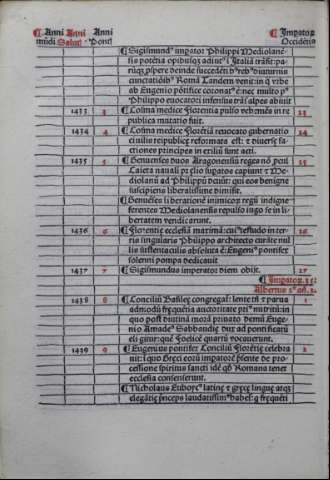 Anni Anni Anni Imperator
mūdi Salut. Pont. Occidētis
Sigismundus imperator Philippi Mediolanē-
sis potētia opibusq adiutus ī Italiā trāsit: pa-
Romā Tandem venit: in q vrbe
ab Eugenio pōtifice coronatus ē: nec multo post
Philippo euocatori infensus trās alpes abiuit
1433 3 Cosma medice Florentia pulso rebus nouis in re 23
publica mutatio fuit.
1434 4 Cosma medice Florētiā reuocato gubernatio 24
ciuilis reipublice reformata est: et diuerse fa-
ctiones principes in exiliū sunt acti.
1435 5 Genuenses duos Aragonensiū reges nō procul 25
Caieta nauali prelio superatos capiunt et Me-
diolanū ad Philippū deuūt: qui eos benigne
suscipiens liberalissime dimisit.
Genuēses liberatione inimicorum regū indigne
ferentes Mediolanensi repulso iugo se in li-
bertatem vendicarunt.
1436 6 Florentie ecclesia maxima: cuius testudo in ter-
ris singularis Philippo architecto curāte nul-
lis sustentaculis absoluta ē: Eugenius pontifex
solenni pompa dedicauit
1437 7 Sigismundus imperator diem obijt. 27
Imperator
Albertus
1438 8 Conciliū Basilee congregatum: lente et parua 1
admodū frequētia auctoritate
quo post diutinā morā priuato demum Euge-
nio Amadeus Sabbaudie dux ad pontificatū
eligitur: quē Foelicē quartū vocauerunt.
1439 9 Eugenius pontifex Conciliū Florētie celebra 2
uit: quo Greci eorū imperatore presente de pro-
cessione spiritus sancti idē quod Romana tenet
ecclesia consenserunt.
Nicholaus latine et grece lingue atq
elegātie princeps laudatissimus habetur